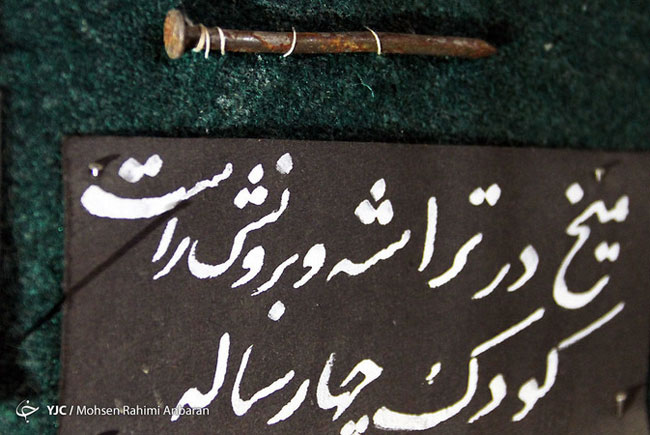 میخ در تراشه و برونش راست
کودک چهار ساله
YJC / Mohsen Rahimi Anbaran